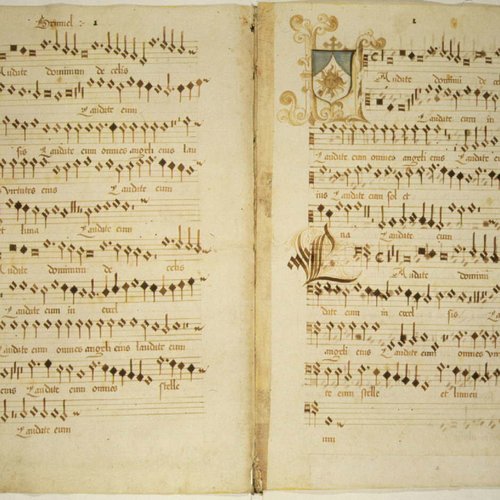 Brumel :
Audate dominum de celis
Laudate eum
sis Laudate eum omnes angeli eius lau
Virtutes eius Laudate eum
et luna Laudate eum
Audate dominum de celis
Laudate eum in excel
Laudate eum omnes angeli eius laudate eum
eius Laudate eum omnes stelle
Laudate eum
1
Audate domini de
Laudate eum in
Laudate eum omnes angeli eius Laudate
ius Laudate eum sol et
na Laudate eum
Audate dominum
date eum in excel sis
angeli eius Laudate eum omnes
te eum stelle et lumen